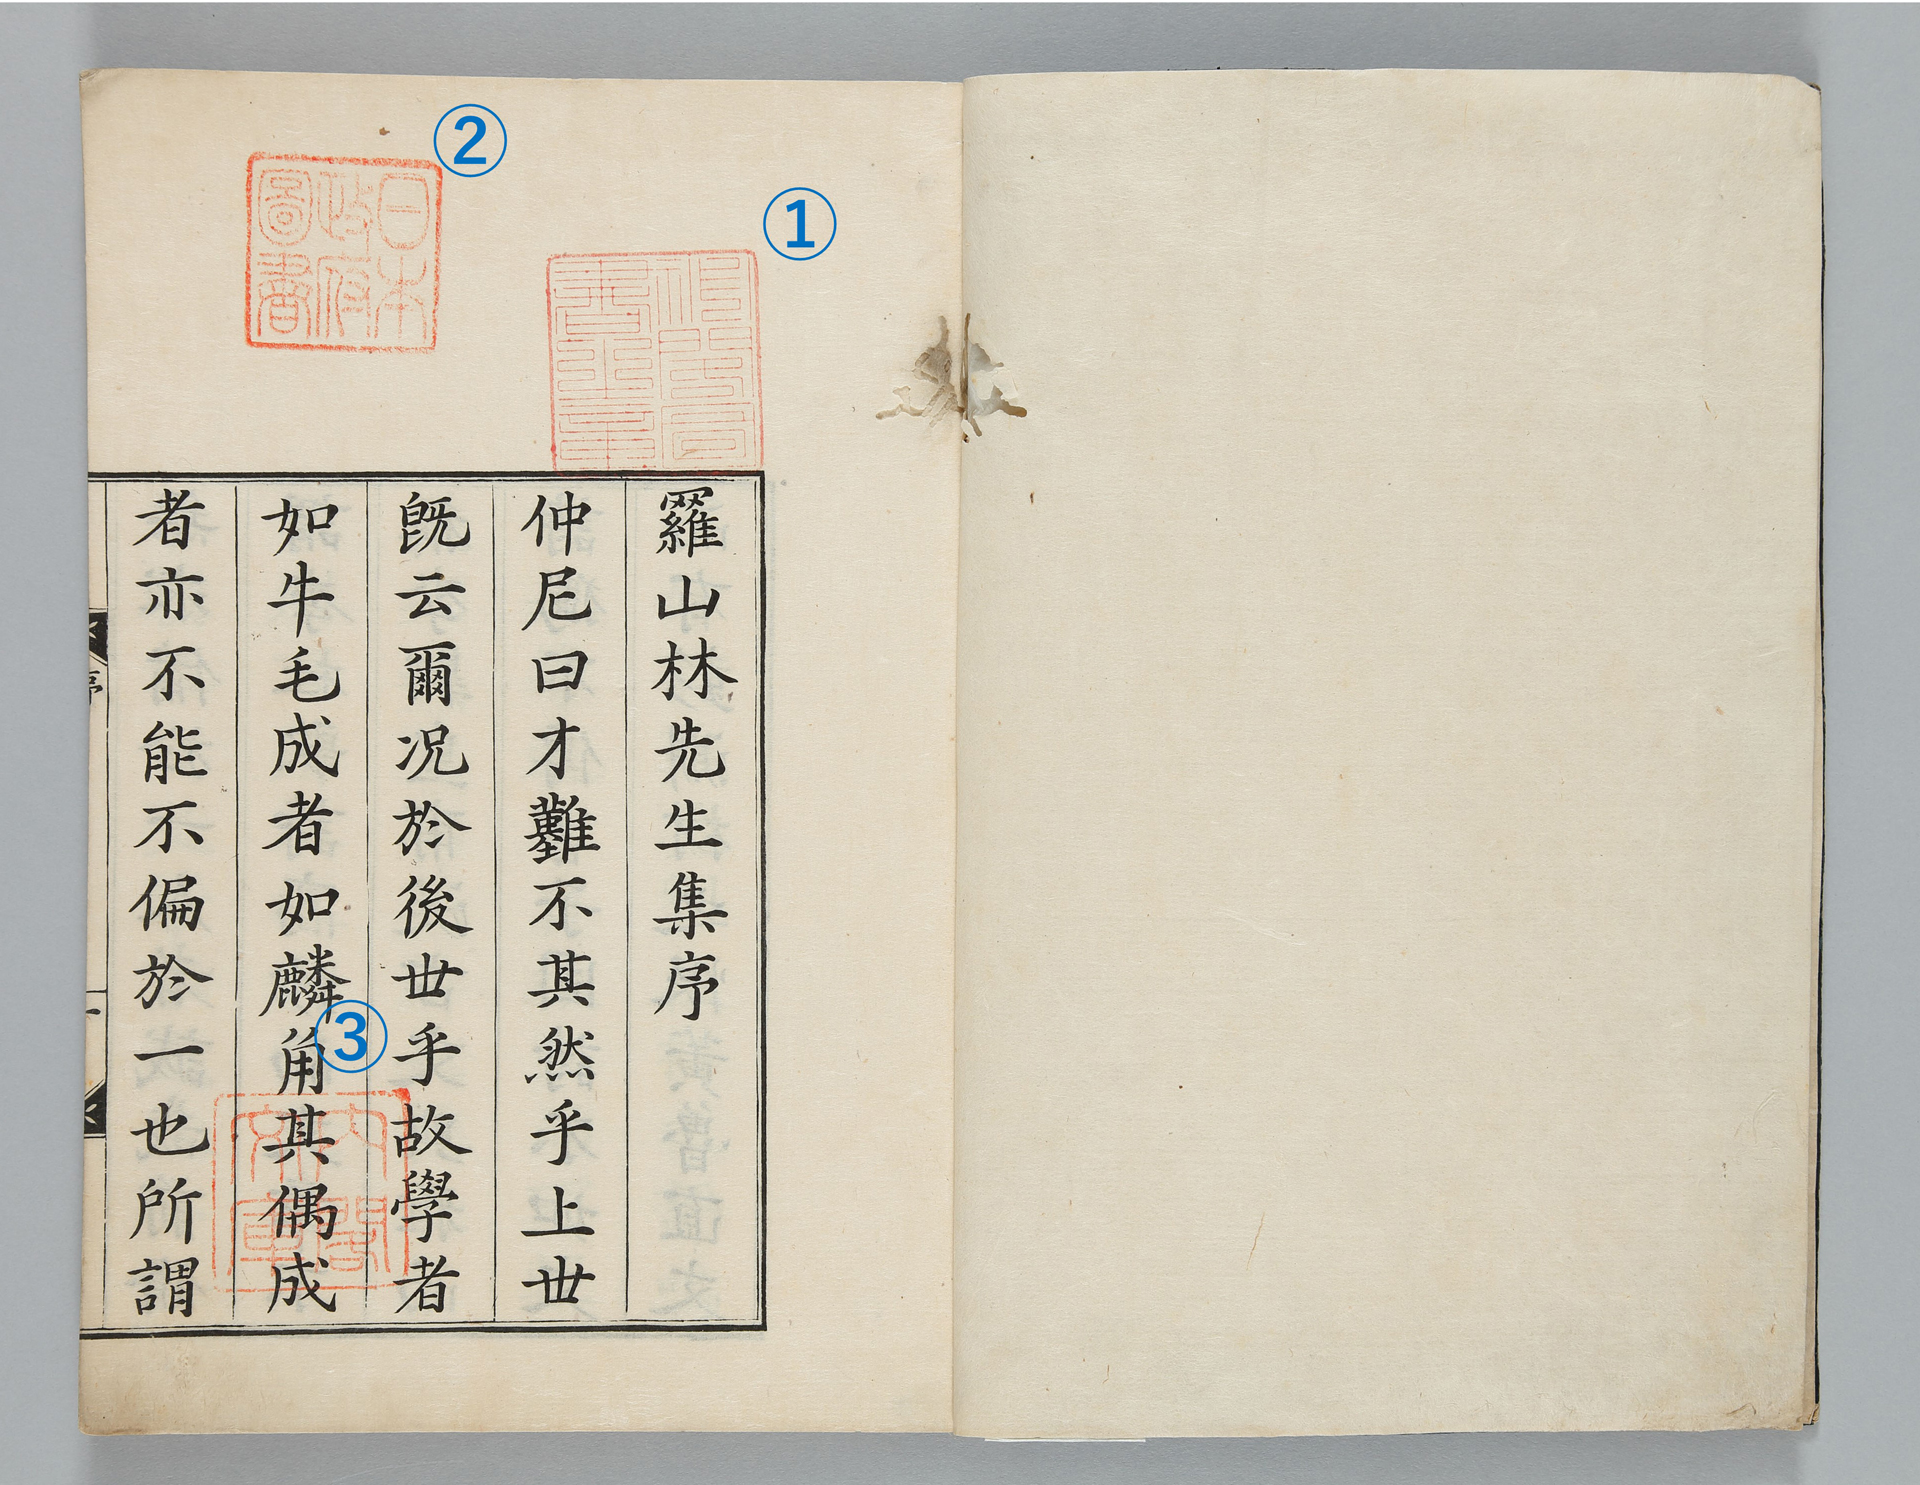 ①
祕閣圖
書之章
②
日本
政府
圖書
羅山林先生集序
仲尼曰才難不其然乎上世
旣云爾况於後世乎故學者
如牛毛成者如麟角其偶成
者亦不能不偏於一也所謂
③
內閣
文庫
序
一